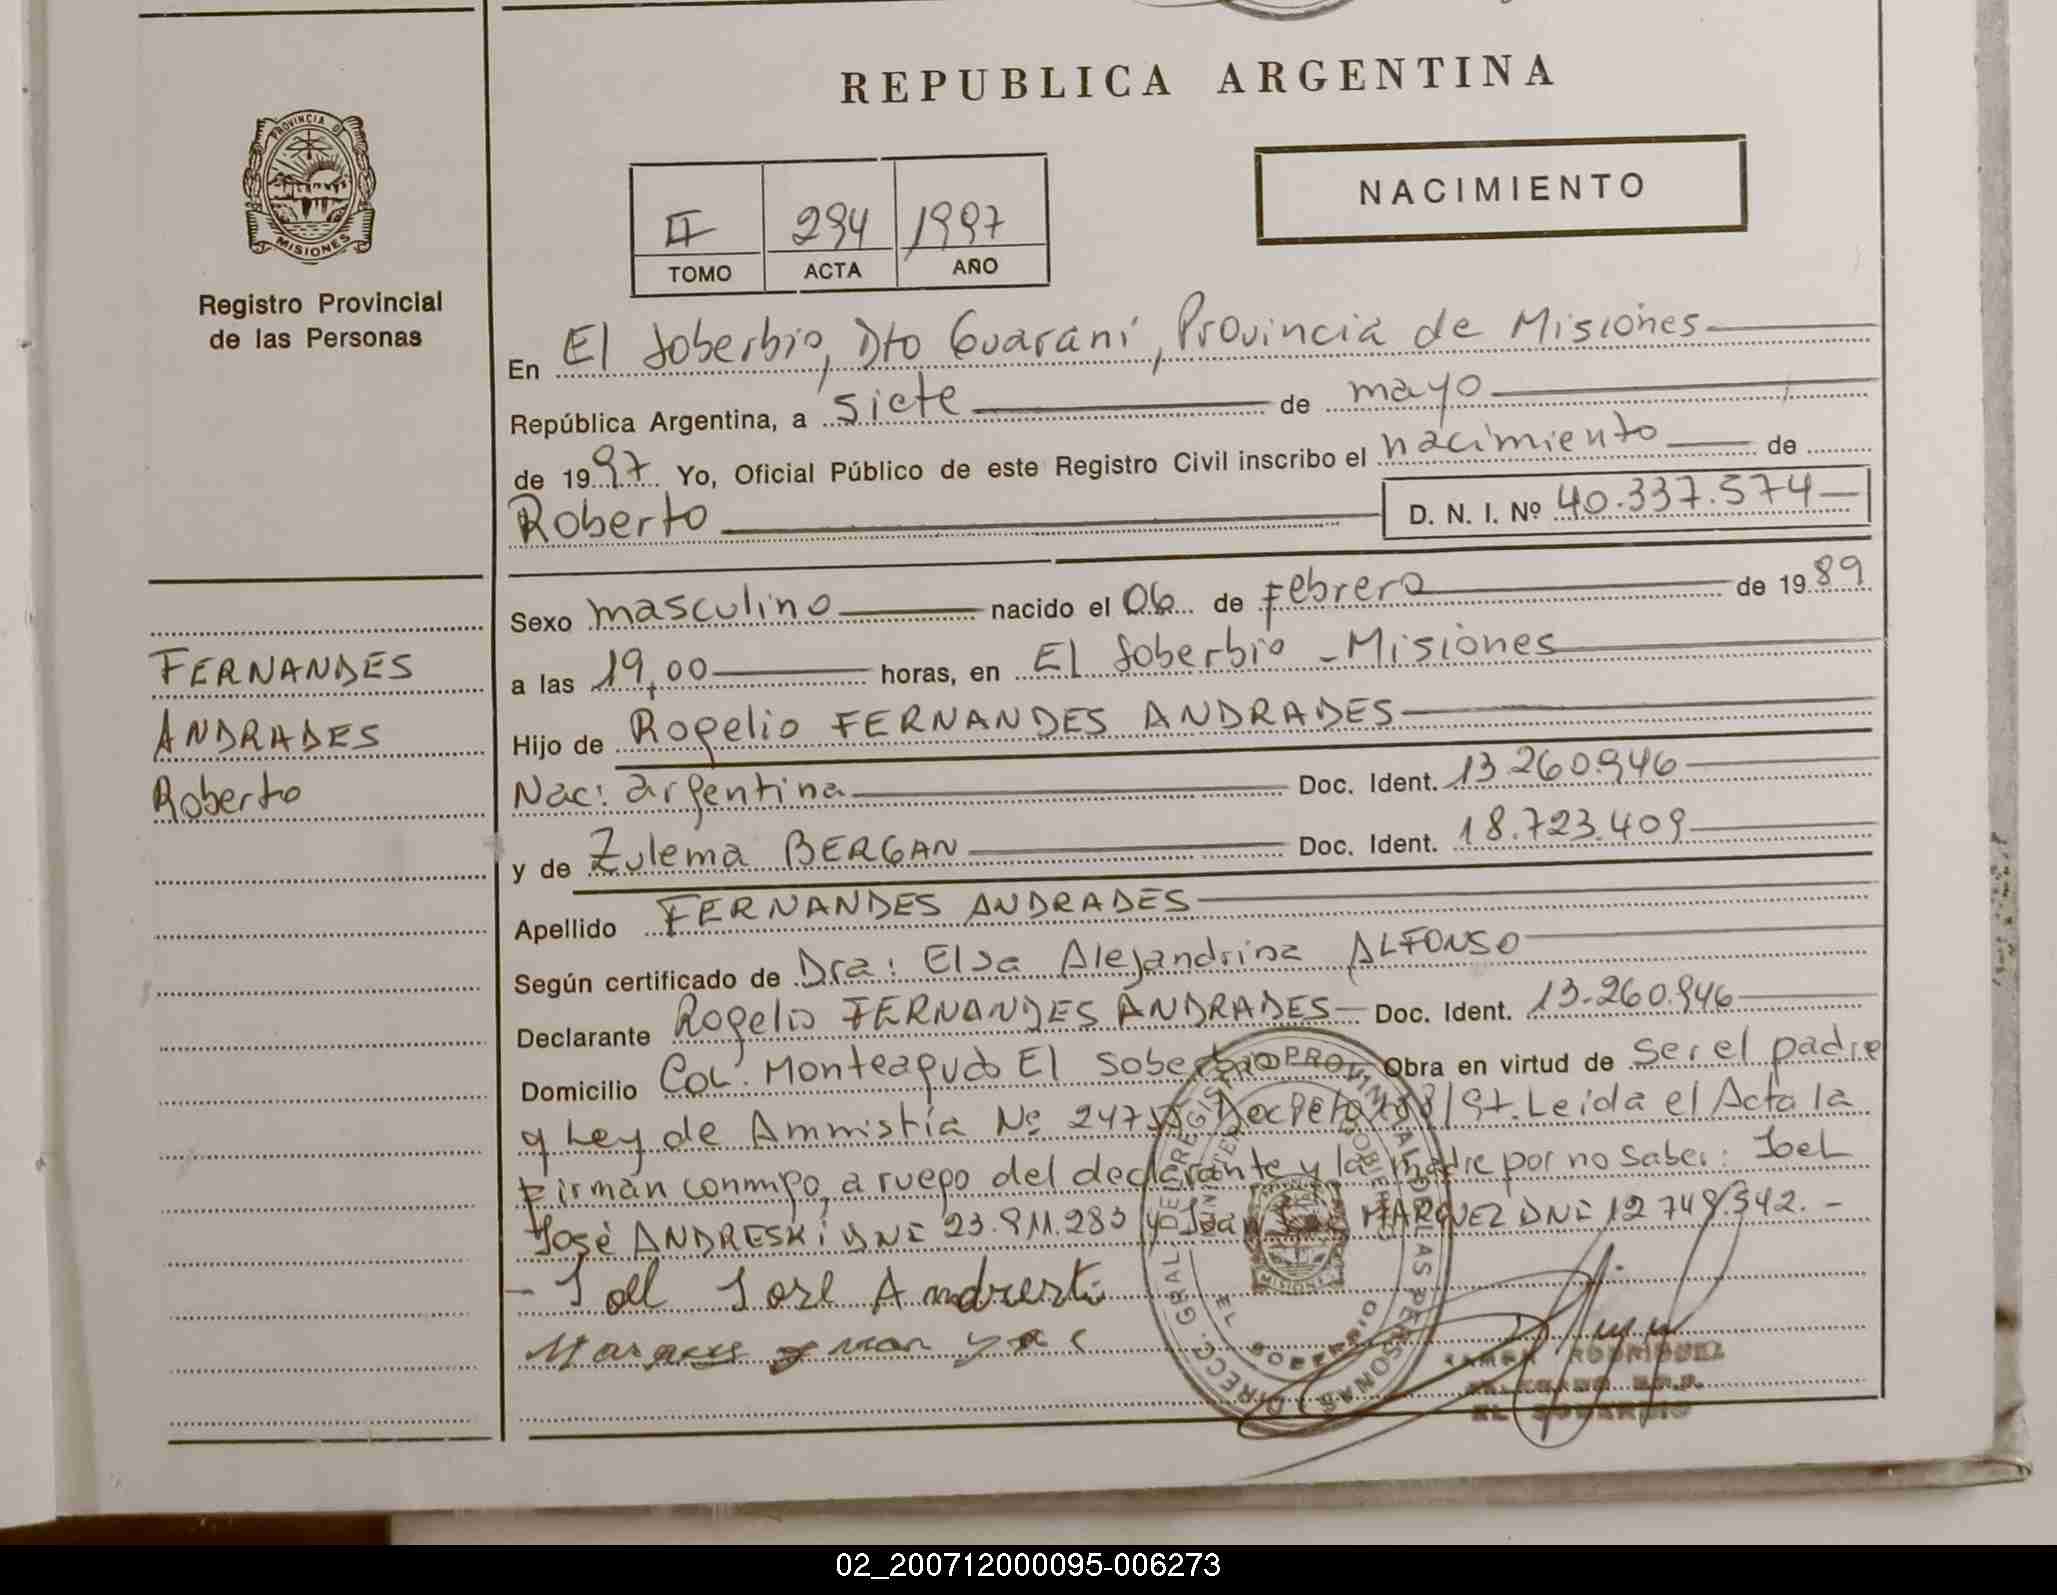 REPUBLICA ARGENTINA
PROVINCIA DE
MISIONES
Registro Provincial
de las Personas
NACIMIENTO
II 294 1997
TOMO ACTA AÑO
En El Soberbio, Dto Guaraní, Provincia de Misiones
República Argentina, a siete de mayo
de 1997 Yo, Oficial Público de este Registro Civil inscribo el nacimiento de
Roberto D. N. I. Nº 40.337.574
Sexo masculino nacido el 06 de Febrero de 1989
a las 19,00 horas, en El Soberbio - Misiones
Hijo de Rogelio FERNANDES ANDRADES
Nac: argentina Doc. Ident. 13.260.946
y de Zulema BERGAN Doc. Ident. 18.723.409
Apellido FERNANDES ANDRADES
Según certificado de Dra: Elsa Alejandrina ALFONSO
Declarante Rogelio FERNANDES ANDRADES Doc. Ident. 13.260.946
Domicilio Col. Monteagudo El Soberbio Obra en virtud de ser el padre
y Ley de Amnistía Nº Decreto Leida el Acta la
Firman conmigo, a ruego del declarante y la madre por no saber: Joel
José ANDRESKI DNI 23.911.283 y Juan MARQUEZ DNI 12.749.342.-
- Joel Jose Andreski
FERNANDES
ANDRADES
Roberto
DIRECC. GRAL DEL REGISTRO PROVINCIAL DE LAS PERSONAS
MISIONES
EL SOBERBIO
RODRIGUEZ
EL SOBERBIO
02_200712000095-006273